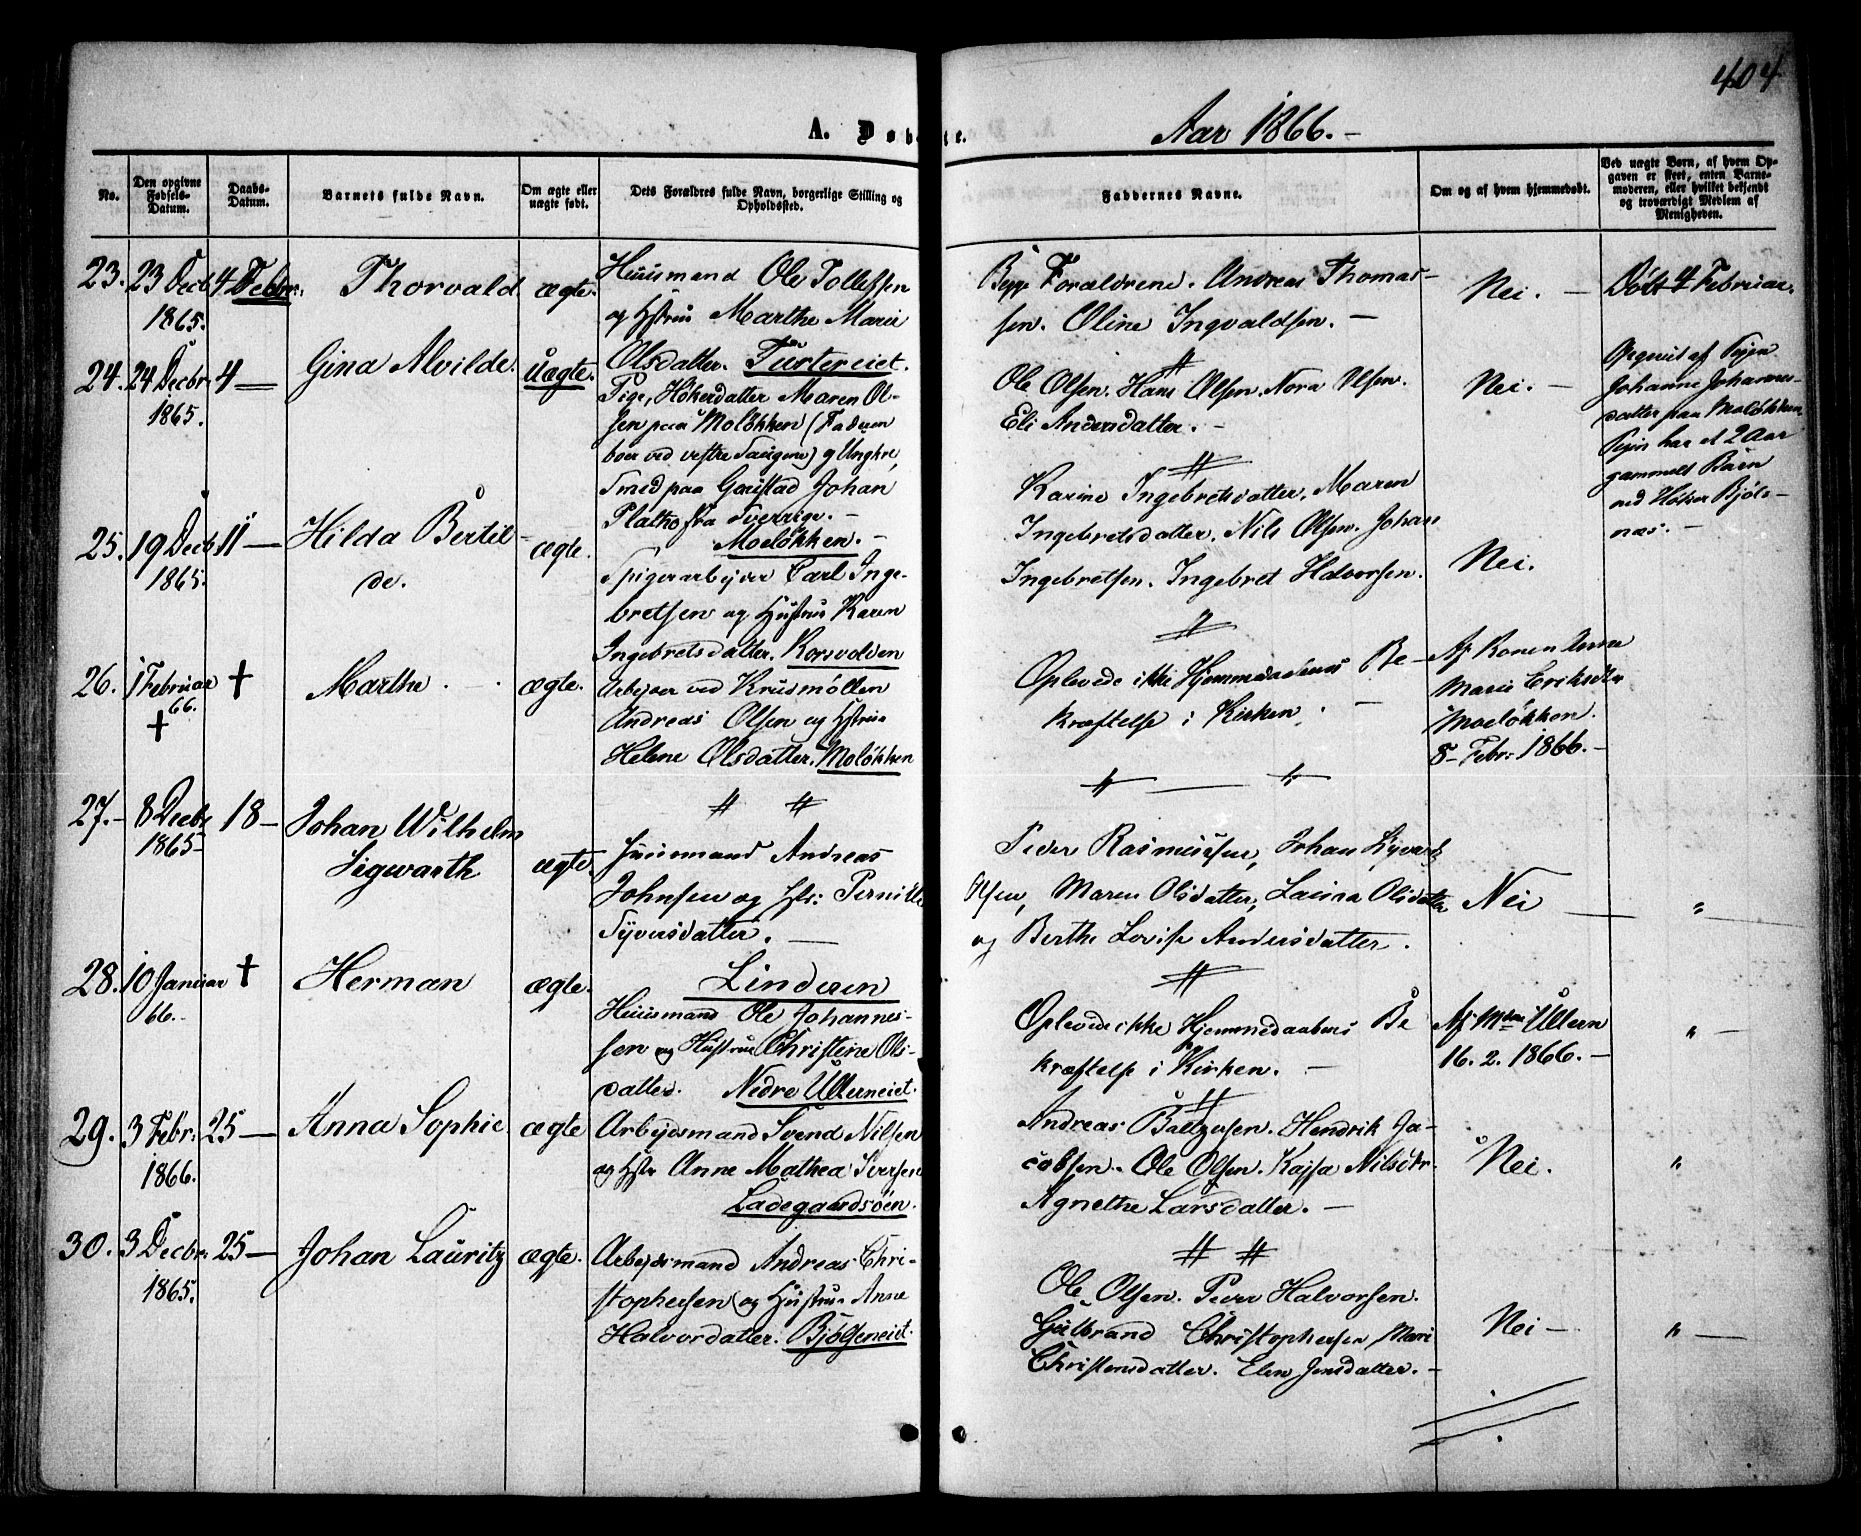 404
A. Døbte.
Aar 1866.-
No.
Den opgivne Fødsels-Datum.
Daabs-Datum.
Barnets fulde Navn.
Om ægte eller uægte født.
Dets Forældres fulde Navn, borgerlige Stilling og Opholdssted.
Faddernes Navne.
Om og af hvem hjemmedøbt.
Ved uægte Børn, af hvem Opgaven er skeet, enten Barnemoderen, eller hvilket bekjendt og troværdigt Medlem af Menigheden.
23. 23 Decb 4 Febr: Thorvald ægte.
1865.
Huusmand Ole Tollefsen
og Hstru Marthe Marie
Olsdatter. Tustereiet.
Begge Forældrene. Andreas Thomas-
sen. Oline Ingvaldsen. -
Nei. -
Døbt 4 Februar.
24. 24 Decbr. 4 — Gina Alvilde. Uægte.
1865.
Pige, Høkerdatter Maren Ol-
sen paa Moløkken (Faderen
boer ved vestre ) og Ungkrl,
Smed paa Gaustad Johan
Platho fra Sverrige. -
Moeløkken. -
Ole Olsen. Hans Olsen. Nora Olsen.
Eli Andersdatter. -
Nei. -
Opgivet af Pigen
Johanne Johannes-
datter paa Moløkken
Pigen har et 2 Aar
gammelt Barn
med Høker Bjøls-
næs. -
25. 19 Decb 11 — Hilda Bertil-
1865. de. ægte.
Spigerarbejder Carl Inge-
bretsen og Hustru Karen
Ingebretsdatter. Korsvolden
Karine Ingebretsdatter, Maren
Ingebretsdatter. Nils Olsen. Johan
Ingebretsen. Ingebret Halvorsen.
Nei.
26. 1 Februar † Marthe ægte.
66.
†
Arbejder ved Krusmøllen
Andreas Olsen og Hstru
Helene Olsdatter. Moløkken
Oplevede ikke Hjemmedaabens Be-
kræftelse i Kirken. -
Af Konen Anne
Marie Eriksdtr
Moeløkken.
8- Febr: 1866. -
27.- 8 Decbr 18 - Johan Wilhelm
1865- Sigwarth ægte.
Huusmand Andreas
Johnsen og Hst: Pernille
Syversdatter. —
Linderen
Peder Rasmussen, Johan Syvert
Olsen, Maren Olsdatter, Laura Olsdatter
og Berthe Lovise Andersdatter.
Nei — "
28. 10 Januar † Herman ægte.
66.-
Huusmand Ole Johannes-
sen og Hustru Christine Ols-
datter. Nedre Ulleneiet.
Oplevede ikke Hjemmedaabens Be
kræftelse i Kirken. -
Af Mdm Ulleern
16. 2. 1866. -
" -
29. 3 Febr: 25 — Anna Sophie ægte
1866.
Arbejdsmand Svend Nilsen
og Hstr Anne Mathea Iversen
Ladegaardsøen.
Andreas Baltzersen. Hendrik Ja-
cobsen. Ole Olsen. Kajsa Nilsdtr.
Agnethe Larsdatter. -
Nei.
"
30. 3 Decbr: 25 — Johan Lauritz ægte.
1865.
Arbejdsmand Andreas Chri-
stophersen og Hustru Anne
Halvordatter. Bjølseneiet.
Ole Olsen. Peder Halvorsen.
Gulbrand Christophersen, Mari
Christensdatter. Elen Jensdatter. -
Nei -
" —